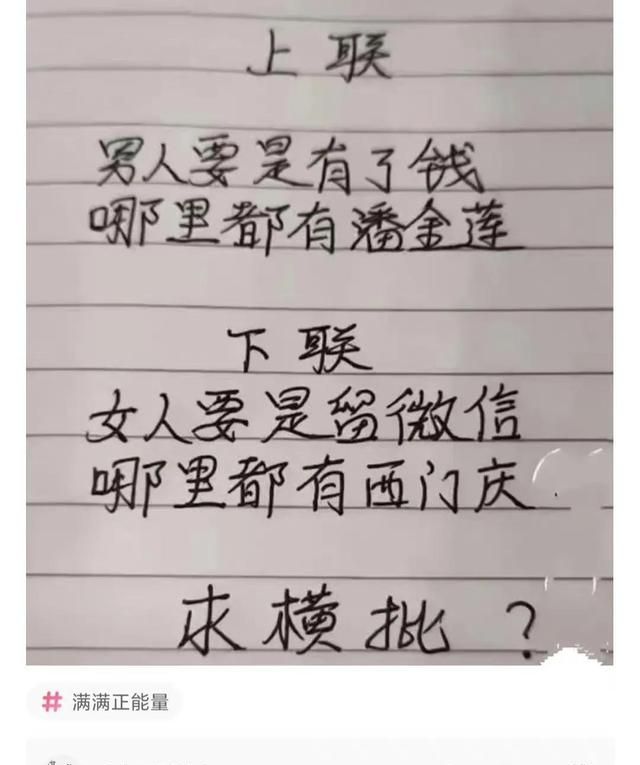 上联
男人要是有了钱
哪里都有潘金莲
下联
女人要是留微信
哪里都有西门庆
求横批？
# 满满正能量